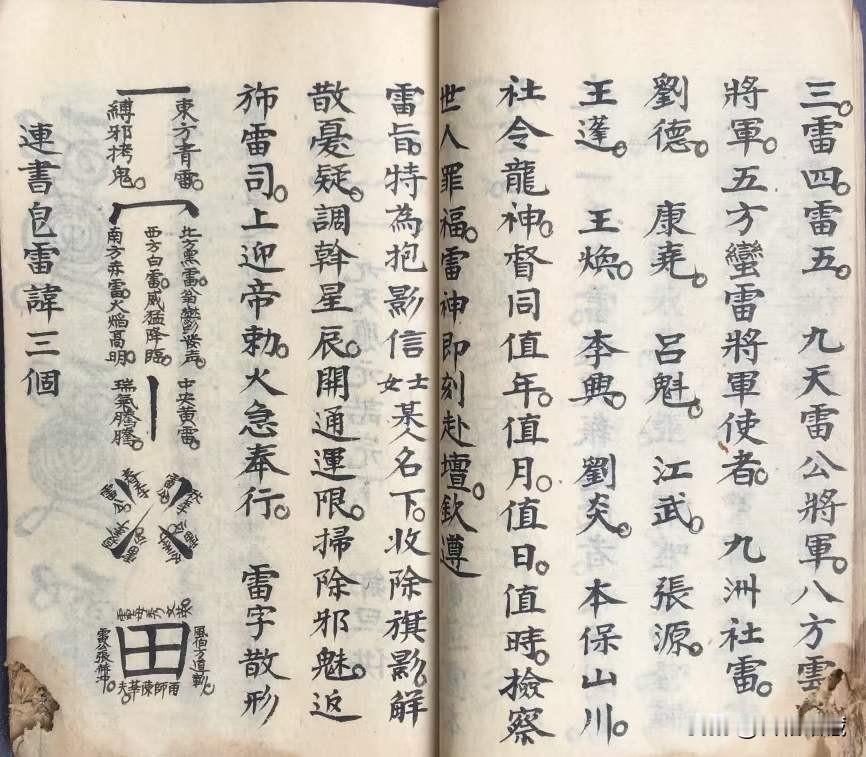 三。雷四。雷五。　九天雷公將軍。八方雲
將軍。五方蠻雷將軍使者。　九洲社雷。
劉德。　康堯。　呂魁。　江武。　張源。
王蓬。　王煥。　李興。　劉炎。　本保山川。
社令龍神。督同值年。值月。值日。值時。撿察
世人罪福。雷神即刻赴壇。欽遵
雷旨。特為抱影信士女某人名下。收除旗影。解
散憂疑。調斡星辰。開通運限。掃除邪魅。返
斾雷司。上迎帝勅。火急奉行。　雷字散形
東方青雷。
縛邪拷鬼。
北方黑雷。
西方白雷。威猛降臨。
南方赤雷。火焰高明。
中央黃雷。
瑞氣騰騰。
風伯方道彰。
田
雨師陳華夫
雷公張
連書皀雷諱三個